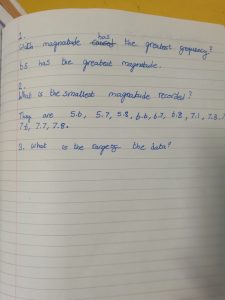 1.
Which magnitude has the greatest frequency?
6.5 has the greatest magnitude.
2.
What is the smallest magnitude recorded?
They are 5.6, 5.7, 5.8, 6.6, 6.7, 6.8, 7.1, 7.3,
7.6, 7.7, 7.8.
3. What is the range of the data?